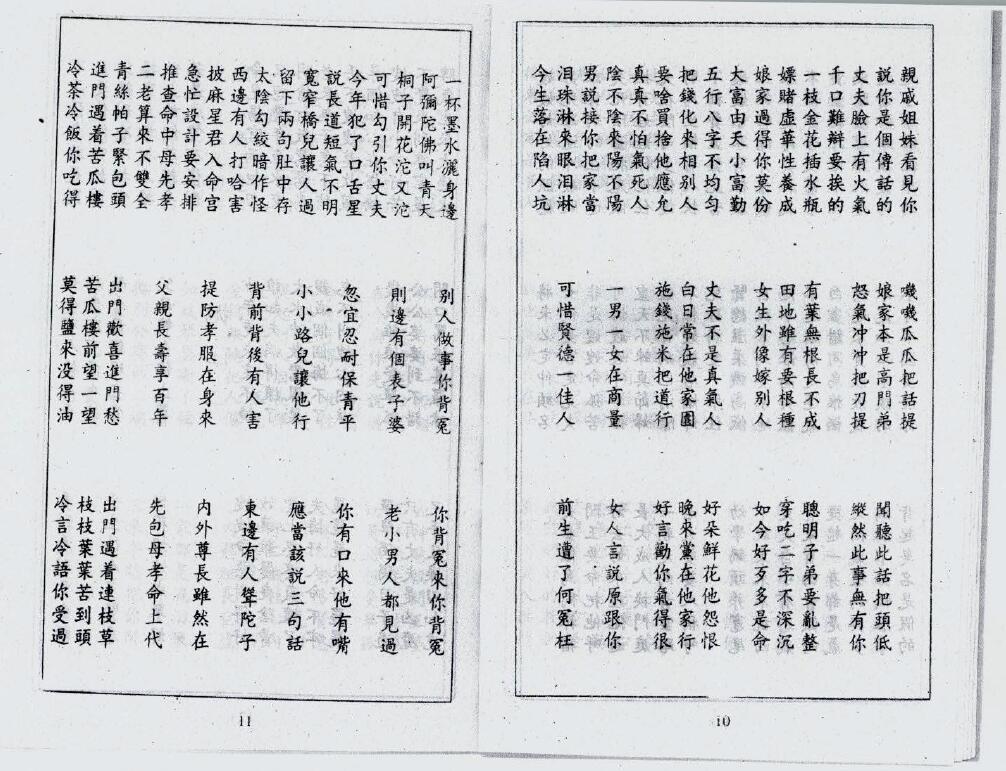 親戚姐妹看見你　嘰嘰瓜瓜把話提
說你是個傳話的　娘家本是高門弟　聞聽此話把頭低
丈夫臉上有火氣　怒氣冲冲把刀提　縱然此事無有你
千口難辯要挨的
一枝金花插水瓶　有葉無根長不成　聰明子弟要亂整
嫖賭虛華性養成　田地雖有要根種　穿吃二字不深沉
娘家過得你莫份　女生外像嫁別人　如今好歹多是命
大富由天小富勤
五行八字不均勻　丈夫不是真氣人　好朵鮮花他怨恨
把錢化來相別人　白日常在他家圓　晚來黨在他家行
耍啥買捨他應允　施錢施米把道行　好言勸你氣得很
真真不怕氣死人
陰不陰來陽不陽　一男一女在商量　女人言說原跟你
男說接你把家當
泪珠淋來眼泪淋　可惜賢德一佳人　前生遭了何冤枉
今生落在陷人坑
10
一杯墨水灑身邊　別人做事你背冤　你背冤來你背冤
阿彌陀佛叫青天
桐子開花沱又沱　則邊有個表子婆　老小男人都見過
可惜勾引你丈夫
今年犯了口舌星　忽宜忍耐保青平　你有口來他有嘴
說長道短氣不明
寬窄橋兒讓人過　小小路兒讓他行　應當該說三句話
留下兩句肚中存
太陰勾絞暗作怪　背前背後有人害　東邊有人聳陀子
西邊有人打哈害
披麻星君入命宫　提防孝服在身來　内外尊長雖然在
急忙設計要安排
推查命中母先孝　父親長壽享百年　先包母孝命上代
二老算來不雙全
青絲帕子緊包頭　出門歡喜進門愁　出門遇着連枝草
進門遇着苦瓜樓　苦瓜樓前望一望　枝枝葉葉苦到頭
冷茶冷飯你吃得　莫得鹽來没得油　冷言冷語你受過
11